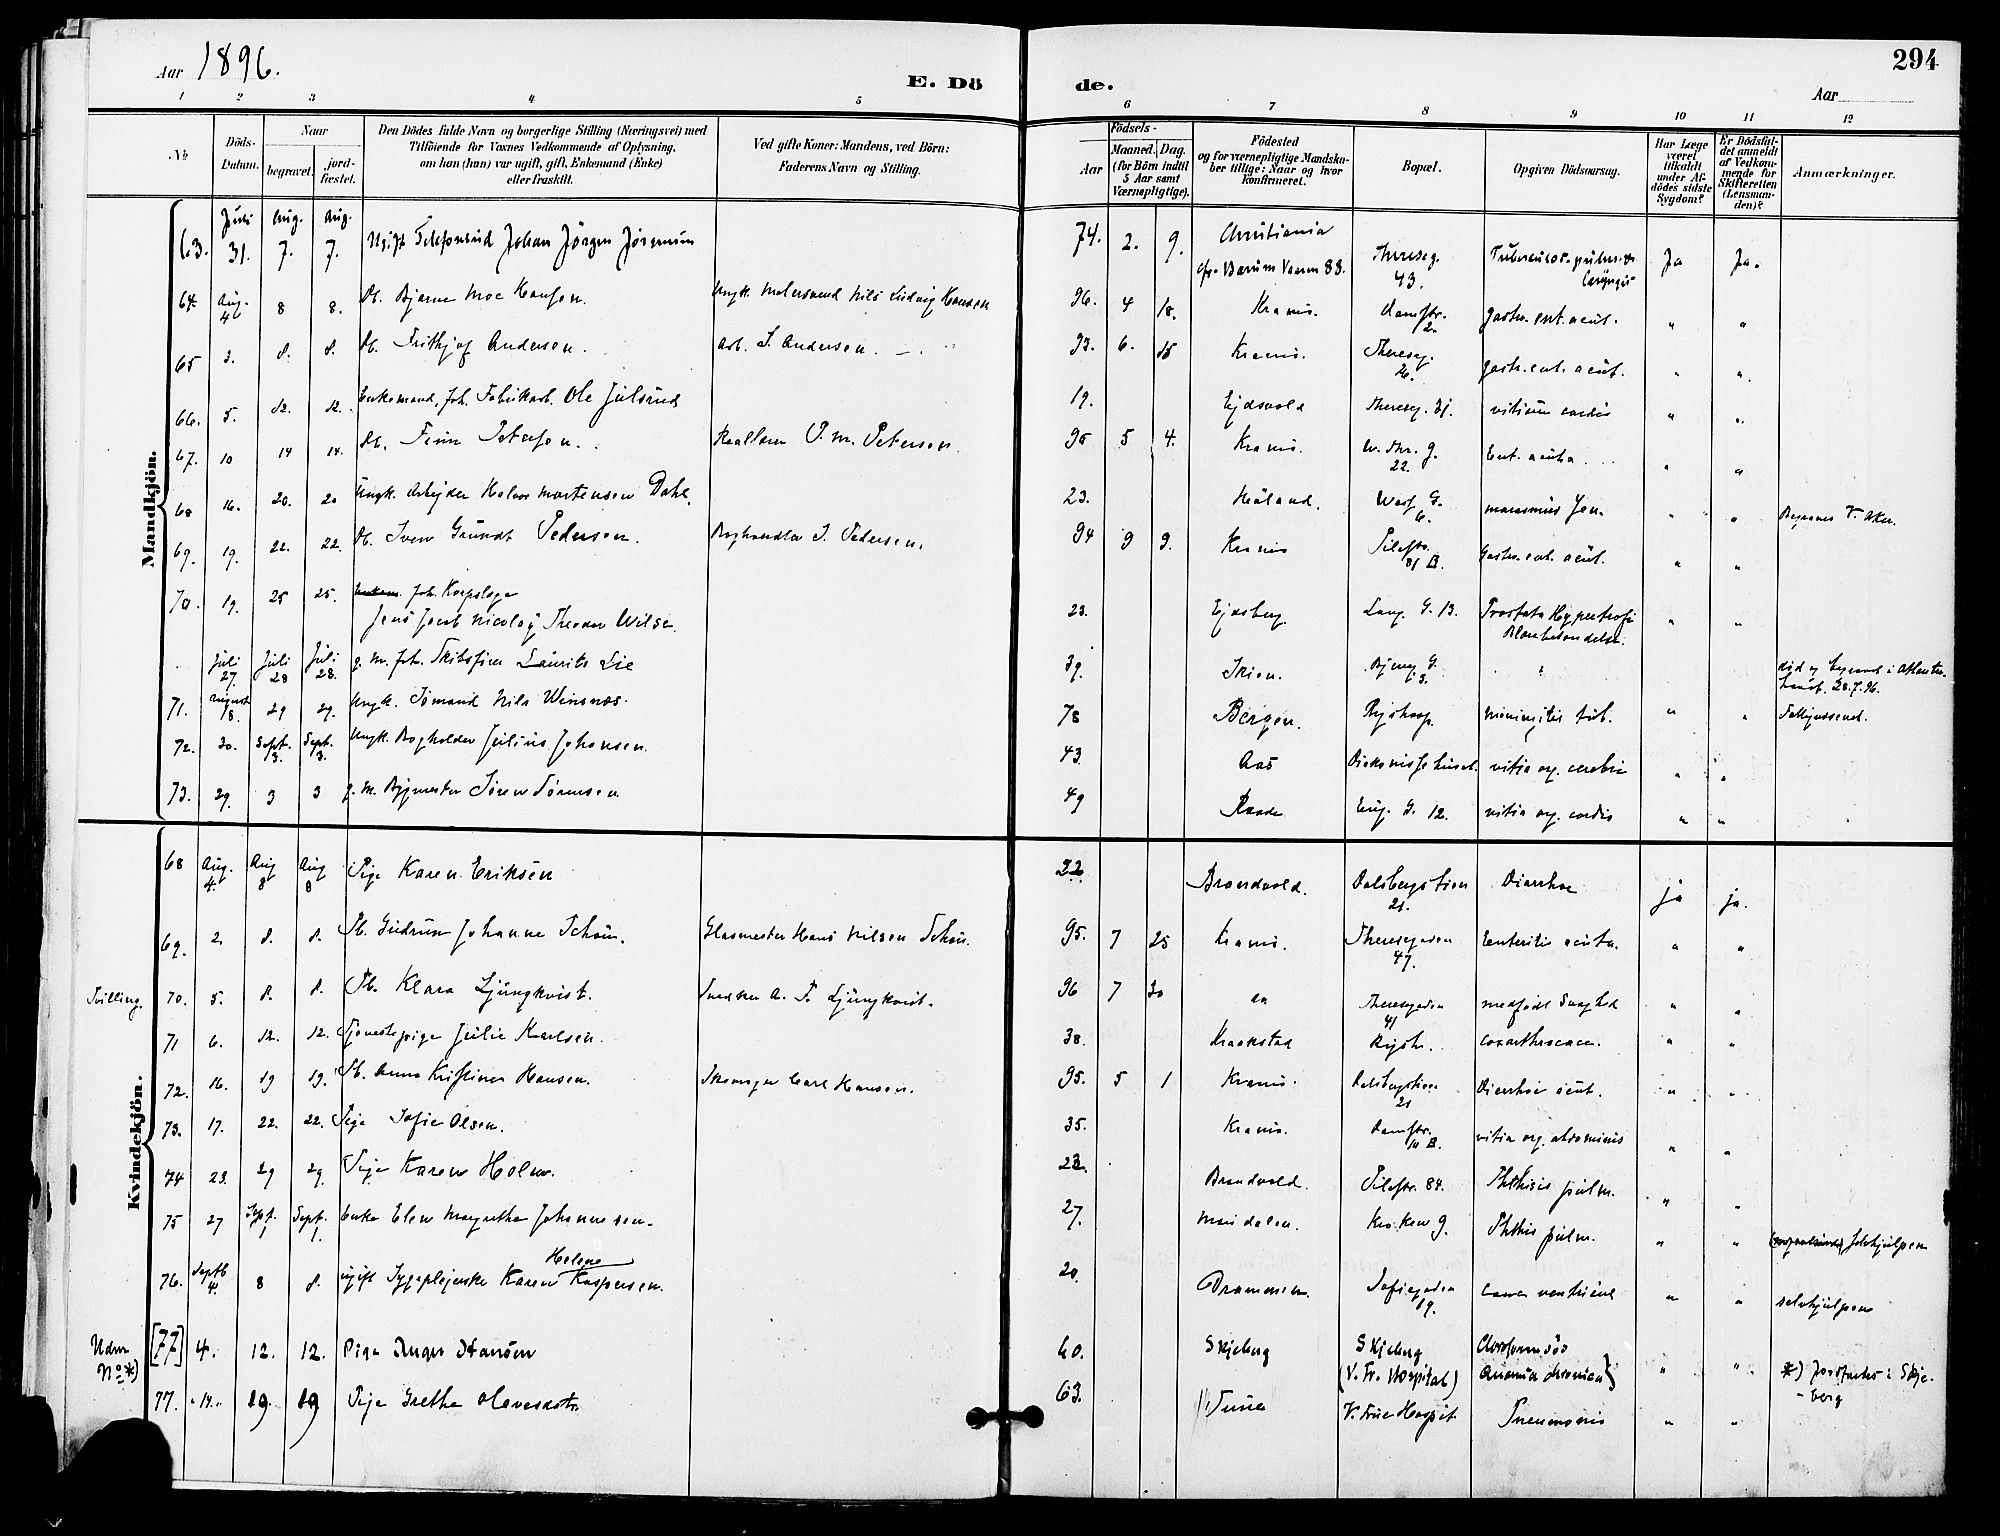 Aar 1896.
E. Dö
de.
294
Aar
1 2 3 4 5 6 7 8 9 10 11 12
No
Döds-Datum.
Naar
begravet.
jord-fæstet.
Den Dödes fulde Navn og borgerlige Stilling (Næringsvei) med
Tilföiende for Voxnes Vedkommende af Oplysning,
om han (hun) var ugift, gift, Enkemand (Enke)
eller fraskilt.
Ved gifte Koner: Mandens, ved Börn:
Faderens Navn og Stilling.
Födsels-
Aar
Maaned.
Dag.
(for Börn indtil
5 Aar samt
Værnepligtige).
Födested
og for værnepligtige Mandska-
ber tillige: Naar og hvor
konfirmeret.
Bopæl.
Opgiven Dödsaarsag.
Har Læge
været
tilkaldt
under Af-
dödes sidste
Sygdom?
Er Dödsfal-
det anmeldt
af Vedkom-
mende for
Skifteretten
(Lensman-
den)?
Anmærkninger.
Mandkjön.
63. Juli 31. Aug. 7. Aug. 7. Ugift Johan Jörgen 74. 2. 9. Christiania Thereseg. 43. Ja Ja.
64. Aug. 4 8 8. Pb. Bjarne Moe Hansen. Ungk. Malersvend Nils Ludvig Hansen 96. 4 18. Krania. Damstr. 2. gastr. ent. acut. " "
65 3. 8. 8. Pb. Frithjof Andersen. Arb. Andersen. 93. 6. 15 Krania. Thereseg. 26. gastr. ent. acut. " "
66. 5. 12. 12. Enkemand, fh. Fabrikarb. Ole Julsrud 19. Ejdsvold Thereseg. vitium cordis " "
67. 10 14 14. Pb. Finn Petersen. P. M. Petersen. 95 5 4. Krania. 22. Ent. acuta " "
68 16. 20. 20 Ungk. Arbejder Halvor Mortensen Dahl. 23. Höland. G. 6. marasmus sen. " " Begraves V. Aker.
69. 19. 22. 22. Pb. Iver Grundt Pedersen. Boghandler Pedersen. 94 9 9. Krania Pilestr. B. Gastr. ent. acut. " "
70. 19. 25 25. fh.
Jens Jacob Nicolay Theodor Wilse. 23. Ejdsberg Lang. G. 13. Prostata Hypertrofi " "
Juli 27 Juli 28 Juli 28. g. M. fh. Skibsförer Laurits Lie 39. Skien. G. 3. död og begravet i Atlanter-
havet 28.7.96.
71. August 18. 29 29. Ungk. Sömand Nils Winsnes. 78 Bergen. Rigshosp. meningitis tub. " "
72. 30. Sept. 3. Sept. 3. Ungk. Bogholder Julius Johansen. 43. Aas Diakonissehuset. vitia org. cerebri " "
73. 29. 3 3 g. M. Bygmester Sören Sörensen. 49 Raade Eug. G. 12. vitia org. cordis " "
Kvindekjön.
68 Aug. 4. Aug 8 Aug 8 Pige Karen Eriksen 22. Brandvold. Dalsbergstien 21. Diarrhoe ja ja.
69. 2. 8. 8. Pb. Gudrun Johanne Schou. Glasmester Hans Nilsen Schou. 95. 7 25 Krania. Theresegaden 47. Enteritis acuta. " "
Tvilling. 70. 5. 8. 8. Pb. Klara Ljungkvist. Snedker A. Ljungkvist. 96 7 30 Theresegaden 41 medfödt Svaghed " "
71 6. 12. 12. Tjenestepige Julie Karlsen. 38. Kraakstad Rigsh. coxarthrocace. " "
72. 16. 19 19. Pb. Anna Kristine Hansen. Skomager Carl Hansen. 95. 5 1 Krania. Dalsbergstien 21 Diarrhoe acut. " "
73. 17. 22. 22. Pige Sofie Olsen. 35. Krania. Damstr. 10 B. vitia org. abdominis " "
74 23. 29 29. Pige Karen Holm. 22. Brandvold. Pilestr. 84. Phthisis pulm. " "
75 27 Sept. 1 Sept. 1 Enke Elen Margrethe Johannesen. 27. Maridalen. Kroken 9. Phthis pulm. " " selvhjulpen
76. Septb 4. 8 8. ugift Sygeplejerske Karen Helene Kaspersen. 20. Drammen. Sofiegaden 19. cancer ventricul " " selvhjulpen
Uden No *) [77] 4. 12. 12. Pige Inger Hansen 60. Skjeberg Skjeberg
(V. Fr. Hospital) Chloroformdöd
Anæmia chronica} " " *) Jordfæstes i Skje-
berg
77. 14. 19 19 Pige Grethe Olavesdatr. 63. Tune V. Frue Hospit Pneumonia " "